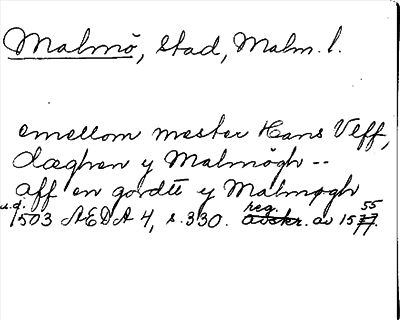 Malmö, stad, Malm. l.
emellom mester Hans Veff,
dæghen y Malmøgh --
aff en gordtt y Malmøgh
u.d. 1503 AEDA 4, s. 330. reg. av 1555.